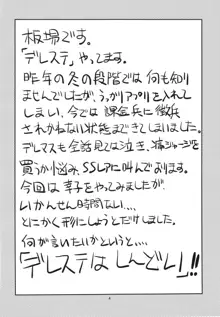 板場です。
「デレステ」やってます。
昨年の冬の段階では何も知り
ませんでしたが、うっかりアプリを入れて
しまい、今では課金兵に徴兵
されかねない状態まできてしまいました。
デレマスも会話見ては泣き、痛ジャージを
買うか悩み、SSレアに叫んでおります。
今回は幸子をやってみましたが
いかんせん時間ない…
とにかく形にしようとだけしました。
何が言いたいかというと…、
「デレステはしんどい」!!